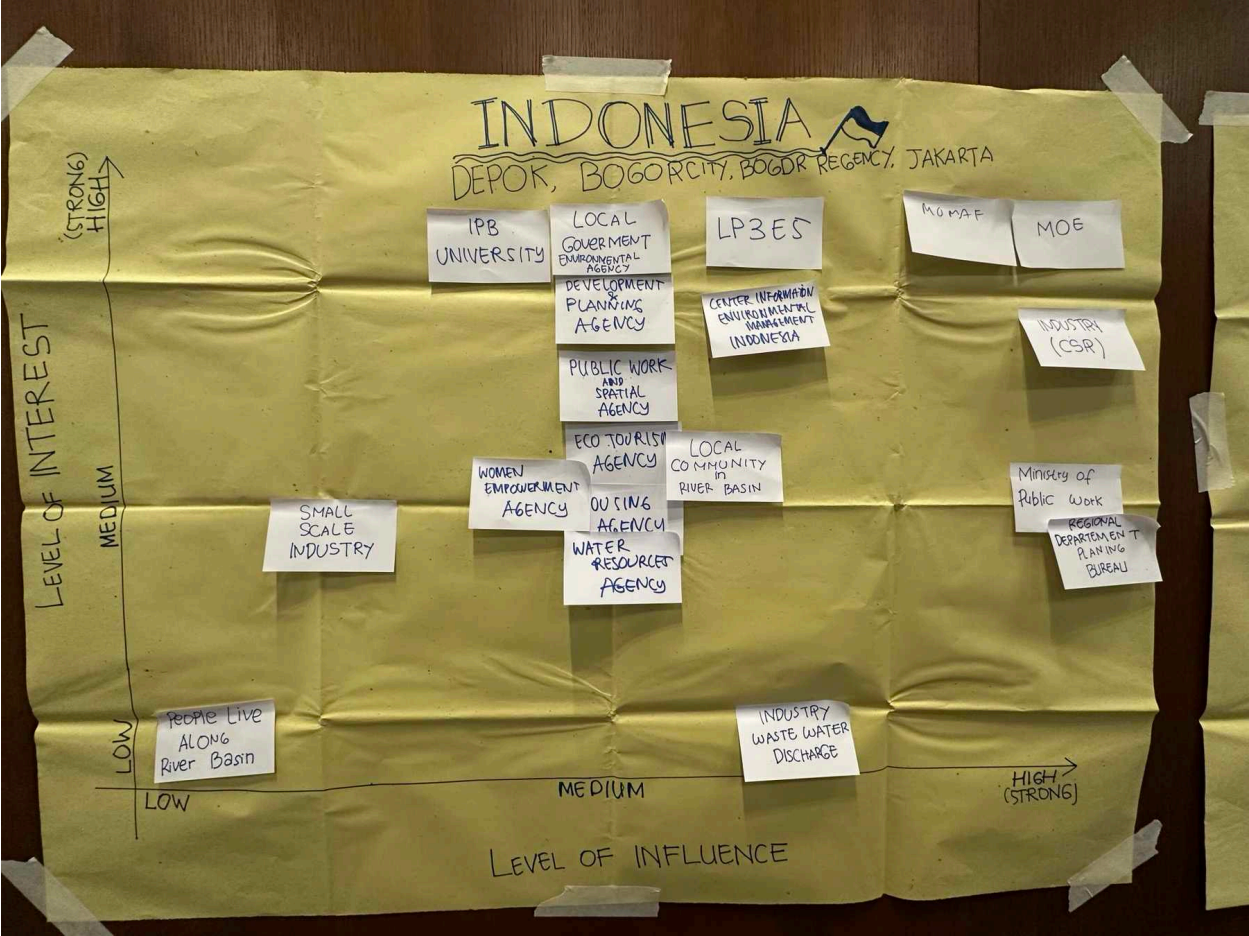 INDONESIA
DEPOK, BOGORCITY, BOGOR REGENCY, JAKARTA
(STRONG)
HIGH
LEVEL OF INTEREST
MEDIUM
LOW
IPB
UNIVERSITY
LOCAL
GOVERMENT
ENVIRONMENTAL
AGENCY
DEVELOPMENT
&
PLANNING
AGENCY
PUBLIC WORK
AND
SPATIAL
AGENCY
ECO TOURISM
AGENCY
WOMEN
EMPOWERMENT
AGENCY
OUSING
AGENCY
WATER
RESOURCES
AGENCY
LP3ES
CENTER INFORMATION
ENVIRONMENTAL
MANAGEMENT
INDONESIA
LOCAL
COMMUNITY
in
RIVER BASIN
MOMAF
MOE
INDUSTRY
(CSR)
Ministry of
Public Work
REGIONAL
DEPARTEMENT
PLANING
BUREAU
SMALL
SCALE
INDUSTRY
People Live
ALONG
River Basin
INDUSTRY
WASTE WATER
DISCHARGE
LOW
MEDIUM
HIGH
(STRONG)
LEVEL OF INFLUENCE